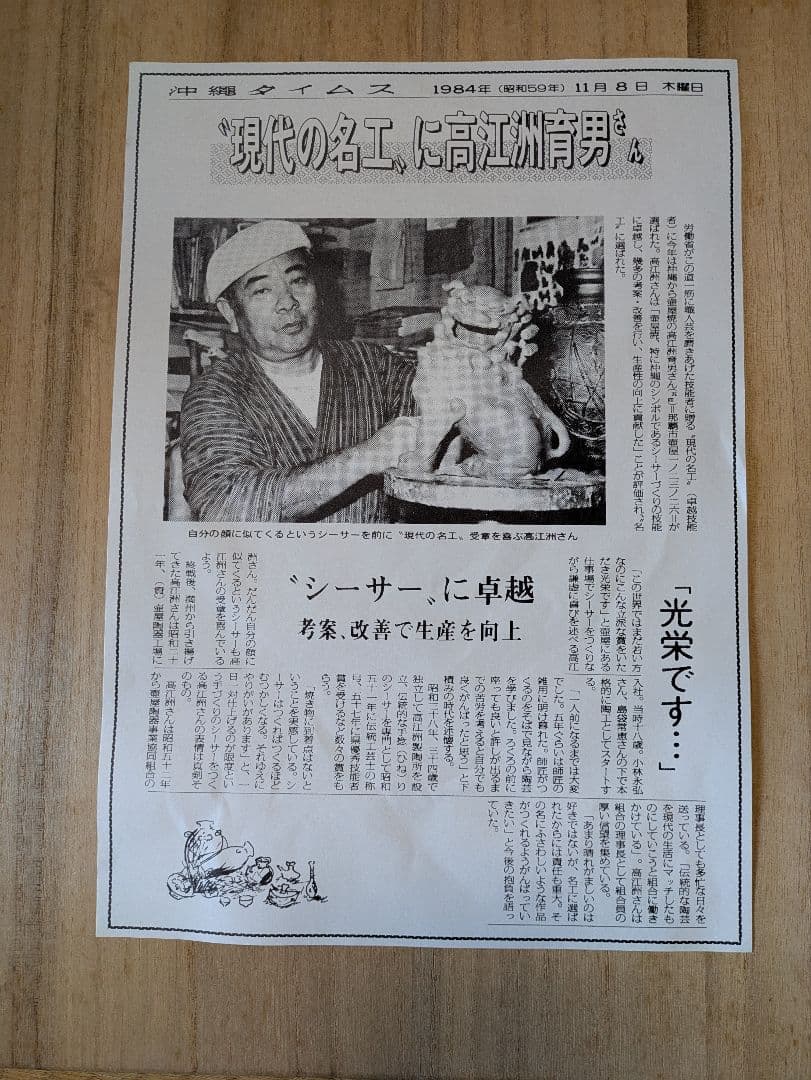 沖縄タイムス 1984年（昭和59年）11月8日 木曜日
〝現代の名工〟に高江洲育男さん
労働省がこの道一筋に職人芸を磨きあげた技能者に贈る〝現代の名工〟（卓越技能
者）に今年は沖縄から壺屋焼の高江洲育男さん＝那覇市壺屋一ノ二三ノ二六＝が
選ばれた。高江洲さんは「壺屋焼、特に沖縄のシンボルであるシーサーづくりの技能
に卓越し、幾多の考案・改善を行い、生産性の向上に貢献した」ことが評価され〝名
工〟に選ばれた。
自分の顔に似てくるというシーサーを前に〝現代の名工〟受章を喜ぶ高江洲さん
「光栄です…」
〝シーサー〟に卓越
考案、改善で生産を向上
「この世界ではまだ若い方
なのにこんな立派な賞をいた
だき光栄です」と壺屋にある
仕事場でシーサーをつくりな
がら謙虚に喜びを述べる高江
洲さん。だんだん自分の顔に
似てくるというシーサーも高
江洲さんの受章を喜んでいる
よう。
終戦後、満州から引き揚げ
てきた高江洲さんは昭和二十
一年、（資）壺屋陶器工場に
入社。当時十八歳。小林永弘
さん、島袋常恵さんの下で本
格的に陶工としてスタートす
る。
「一人前になるまでは大変
でした。五年ぐらいは師匠の
雑用に明け暮れた。師匠がつ
くるのをそばで見ながら陶芸
を学びました。ろくろの前に
座っても良いと許しが出るま
での苦労を考えると自分でも
良くがんばったと思う」と下
積みの時代を述懐する。
昭和三十八年、三十四歳で
独立して高江洲製陶所を設
立。伝統的な手捻（ひね）り
のシーサーを専門として昭和
五十一年に伝統工芸士の称
号、五十七年に県優秀技能者
賞を受けるなど数々の賞をも
らう。
「焼き物に到着点はないと
いうことを実感している。シ
ーサーはつくればつくるほど
むつかしくなる。それゆえに
やりがいがあります」と、一
日一対仕上げるのが限度とい
う手づくりのシーサーをつく
る高江洲さんの表情は真剣そ
のもの。
高江洲さんは昭和五十二年
から壺屋陶器事業協同組合の
理事長としても多忙な日々を
送っている。「伝統的な陶芸
を現代の生活にマッチしたも
のにしていこうと組合に働き
かけている」。高江洲さんは
組合の理事長として組合員の
厚い信望を集めている。
「あまり晴れがましいのは
好きではないが、名工に選ば
れたからには責任も重大。そ
の名にふさわしいような作品
がつくれるようがんばってい
きたい」と今後の抱負を語っ
ていた。